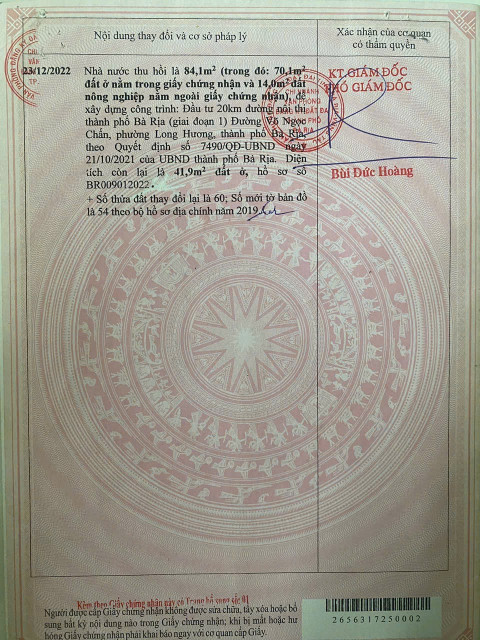 Nội dung thay đổi và cơ sở pháp lý
Xác nhận của cơ quan
có thẩm quyền
23/12/2022
Nhà nước thu hồi là 84,1m² (trong đó: 70,1m²
đất ở nằm trong giấy chứng nhận và 14,0m² đất
nông nghiệp nằm ngoài giấy chứng nhận), để
xây dựng công trình: Đầu tư 20km đường nội thị
thành phố Bà Rịa (giai đoạn 1) Đường Võ Ngọc
Chấn, phường Long Hương, thành phố Bà Rịa,
theo Quyết định số 7490/QĐ-UBND ngày
21/10/2021 của UBND thành phố Bà Rịa. Diện
tích còn lại là 41,9m² đất ở, hồ sơ số
BR009012022.
+ Số thửa đất thay đổi lại là 60; Số mới tờ bản đồ
là 54 theo bộ hồ sơ địa chính năm 2019.
KT.GIÁM ĐỐC
PHÓ GIÁM ĐỐC
CHI NHÁNH
VĂN PHÒNG
ĐĂNG KÝ ĐẤT ĐAI
THÀNH PHỐ
BÀ RỊA
Bùi Đức Hoàng
Kèm theo Giấy chứng nhận này có Trang bổ sung số: 01
Người được cấp Giấy chứng nhận không được sửa chữa, tẩy xóa hoặc bổ
sung bất kỳ nội dung nào trong Giấy chứng nhận; khi bị mất hoặc hư
hỏng Giấy chứng nhận phải khai báo ngay với cơ quan cấp Giấy.
2656317250002